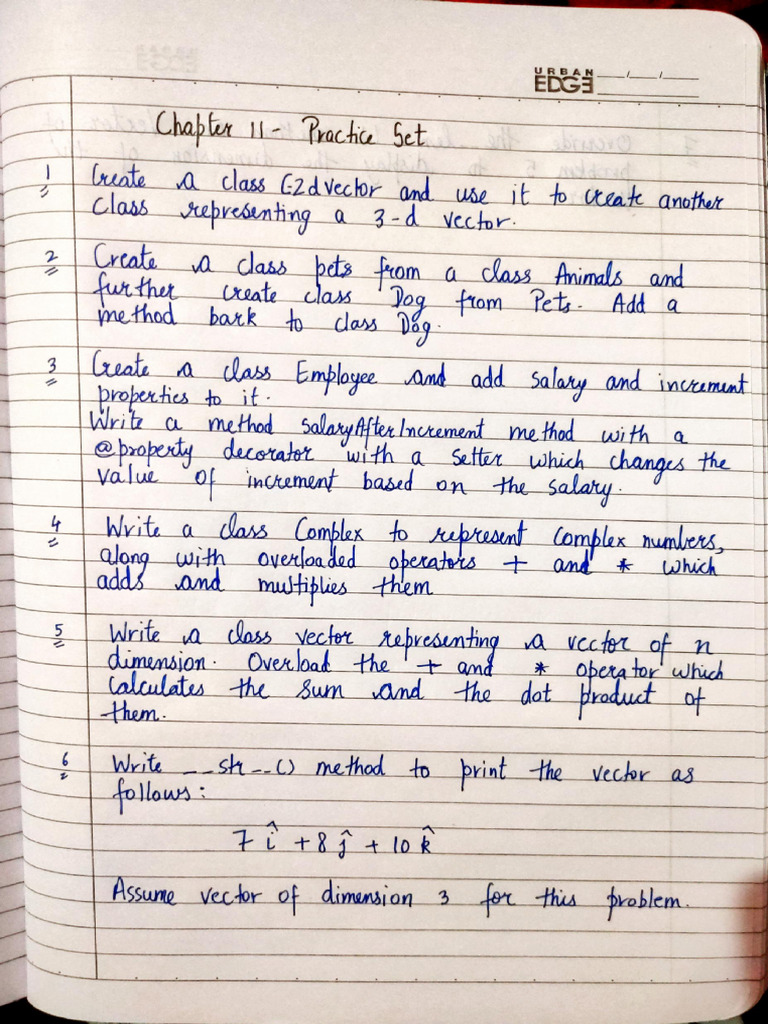 URBAN
EDGE
Chapter 11 - Practice Set
1 Create a class C-2d vector and use it to create another
class representing a 3-d vector.
2 Create a class pets from a class Animals and
further create class Dog from Pets. Add a
method bark to class Dog.
3 Create a class Employee and add salary and increment
properties to it.
Write a method SalaryAfterIncrement method with a
@property decorator with a setter which changes the
value of increment based on the salary.
4 Write a class Complex to represent complex numbers,
along with overloaded operators + and * which
adds and multiplies them
5 Write a class vector representing a vector of n
dimension. Overload the + and * operator which
calculates the sum and the dot product of
them.
6 Write __str__() method to print the vector as
follows:
7 î + 8 ĵ + 10 k̂
Assume vector of dimension 3 for this problem.